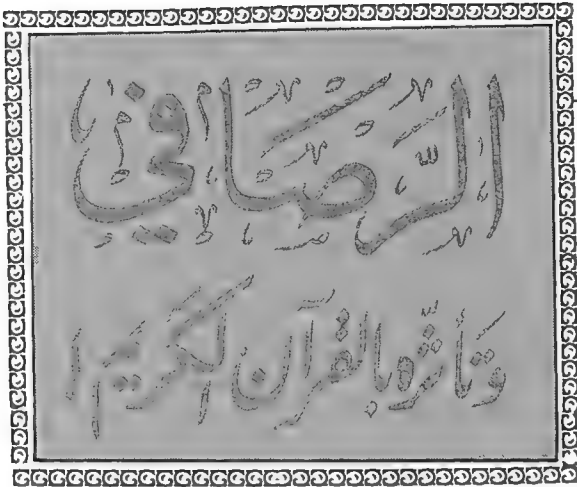 الرَّصَافي
وتأثّره بالقرآن الكريم